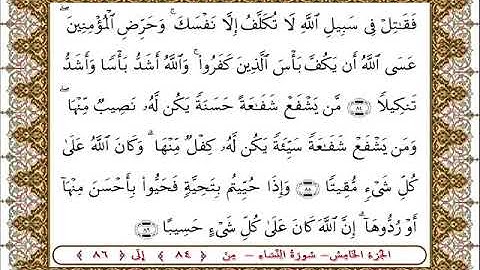 فَقَٰتِلۡ فِي سَبِيلِ ٱللَّهِ لَا تُكَلَّفُ إِلَّا نَفۡسَكَۚ وَحَرِّضِ ٱلۡمُؤۡمِنِينَۖ
عَسَى ٱللَّهُ أَن يَكُفَّ بَأۡسَ ٱلَّذِينَ كَفَرُواْۚ وَٱللَّهُ أَشَدُّ بَأۡسٗا وَأَشَدُّ
تَنكِيلٗا ٨٤ مَّن يَشۡفَعۡ شَفَٰعَةً حَسَنَةٗ يَكُن لَّهُۥ نَصِيبٞ مِّنۡهَاۖ
وَمَن يَشۡفَعۡ شَفَٰعَةٗ سَيِّئَةٗ يَكُن لَّهُۥ كِفۡلٞ مِّنۡهَاۗ وَكَانَ ٱللَّهُ عَلَىٰ
كُلِّ شَيۡءٖ مُّقِيتٗا ٨٥ وَإِذَا حُيِّيتُم بِتَحِيَّةٖ فَحَيُّواْ بِأَحۡسَنَ مِنۡهَآ
أَوۡ رُدُّوهَآۗ إِنَّ ٱللَّهَ كَانَ عَلَىٰ كُلِّ شَيۡءٍ حَسِيبًا ٨٦
الجزء الخامس - سورة النساء - من ﴿ ٨٤ ﴾ إلى ﴿ ٨٦ ﴾